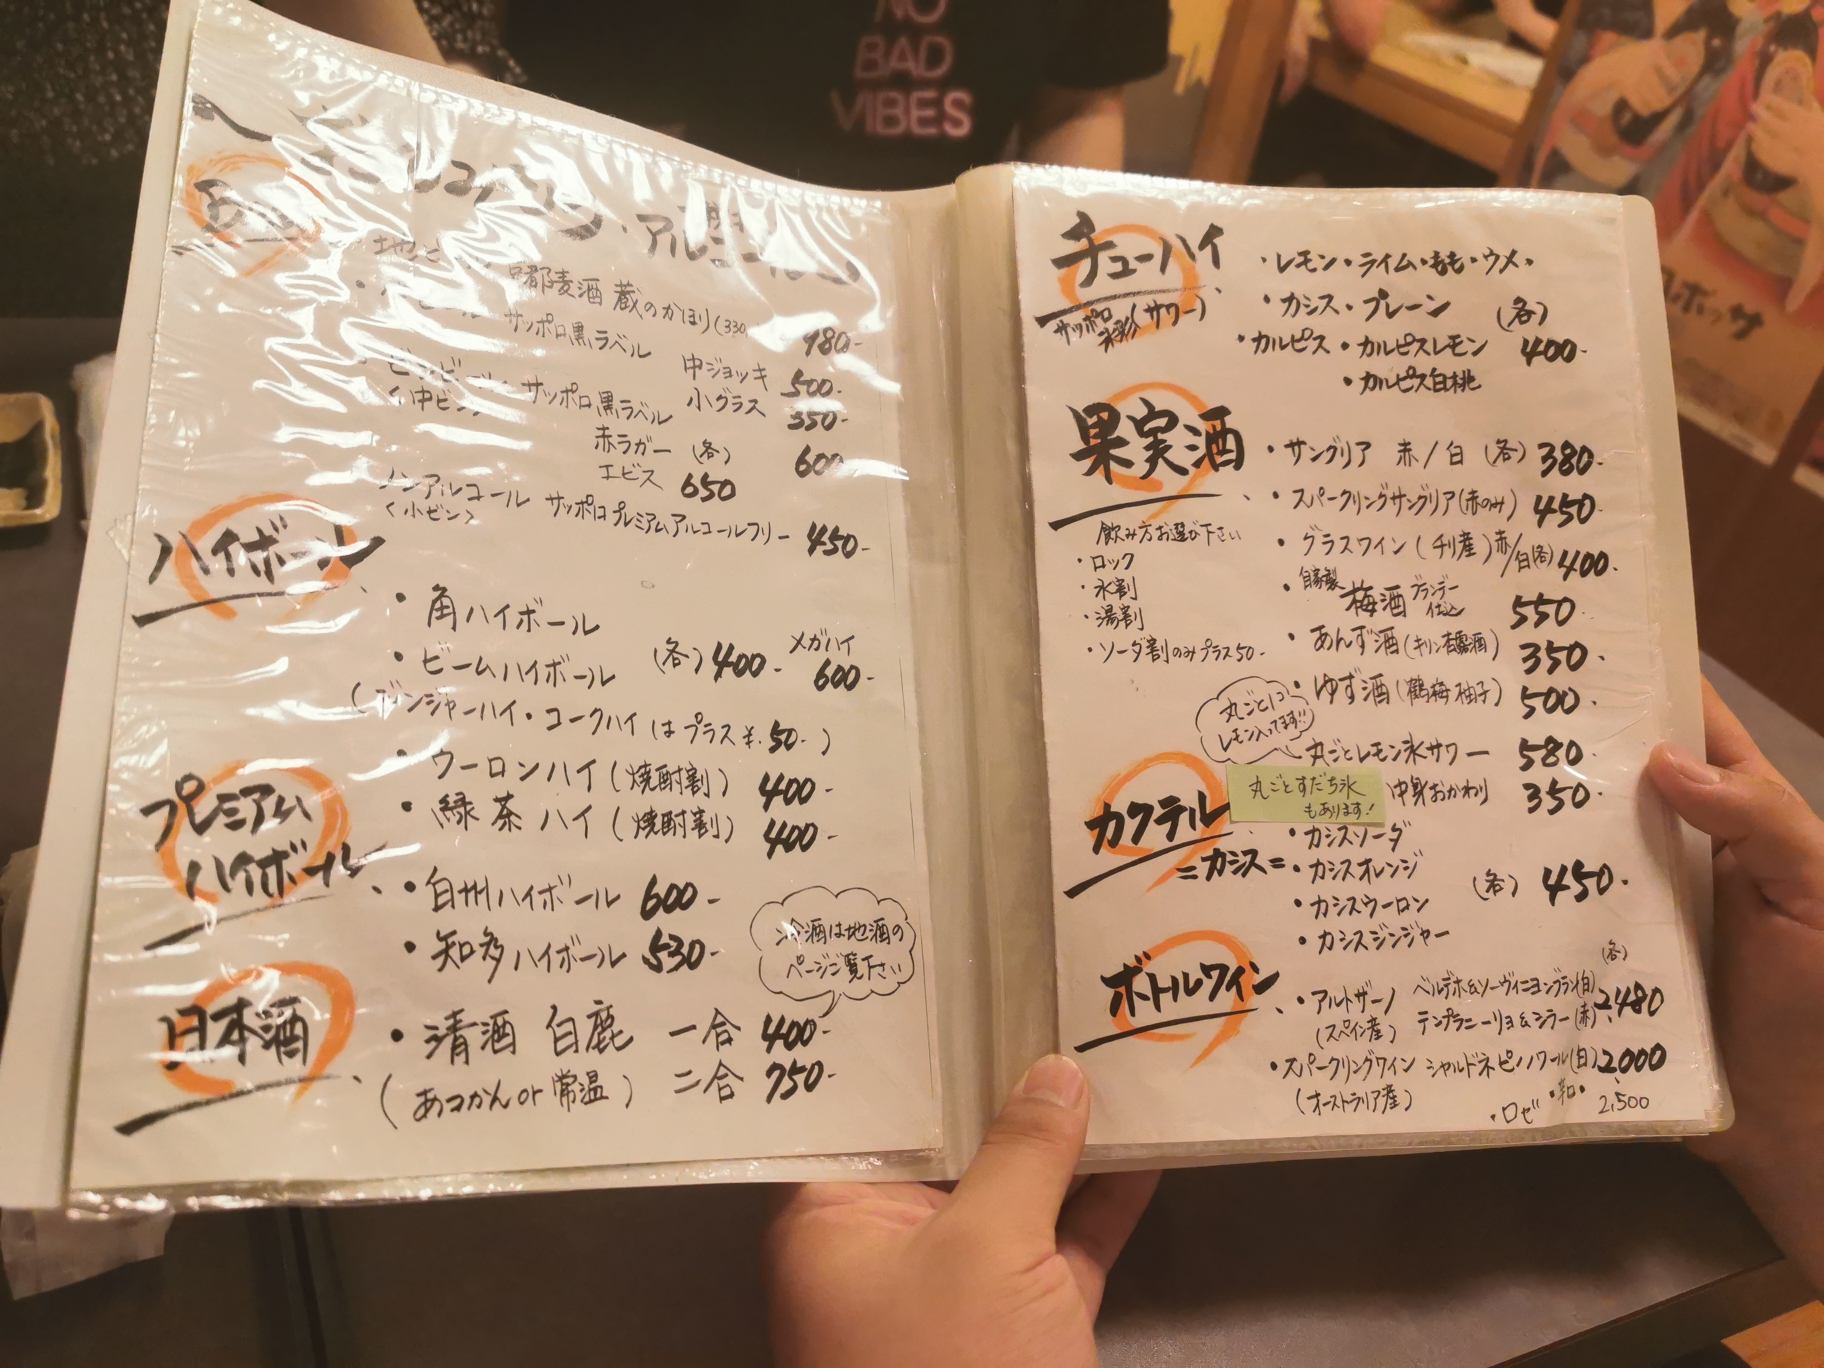 NO
BAD
VIBES
都麦酒 蔵のかほり(330
980-
サッポロ黒ラベル 中ジョッキ 500-
小グラス 350-
ビンビール サッポロ黒ラベル
<中ビン>
赤ラガー (各) 600
エビス 650
ノンアルコール サッポロプレミアムアルコールフリー 450-
<小ビン>
ハイボール
・角ハイボール
・ビームハイボール (各)400- メガハイ 600-
(ジンジャーハイ・コークハイ はプラス¥.50-)
・ウーロンハイ(焼酎割) 400-
・緑茶ハイ(焼酎割) 400-
プレミアム
ハイボール
・白州ハイボール 600-
・知多ハイボール 530-
冷酒は地酒の
ページご覧下さい
日本酒
・清酒 白鹿 一合 400-
(あつかんor常温) 二合 750-
チューハイ
サッポロ
氷彩(サワー)
・レモン・ライム・もも・ウメ・
・カシス・プレーン (各)
・カルピス・カルピスレモン 400-
・カルピス白桃
果実酒
・サングリア 赤/白 (各) 380-
・スパークリングサングリア(赤のみ) 450-
・グラスワイン(チリ産)赤/白(各)400-
・自家製 梅酒 ブランデー仕込 550-
・あんず酒(キリン杏露酒) 350-
・ゆず酒(鶴梅 柚子) 500-
飲み方お選び下さい
・ロック
・水割
・湯割
・ソーダ割のみプラス50-
丸ごと1コ
レモン入ってます!!
丸ごとレモン氷サワー 580-
中身おかわり 350-
丸ごとすだち氷
もあります!
カクテル
=カシス=
・カシスソーダ
・カシスオレンジ
・カシスウーロン
・カシスジンジャー
(各) 450-
ボトルワイン
(各)
・アルトザーノ ベルデホ&ソーヴィニヨンブラン(白) 2,480
(スペイン産) テンプラニーリョ&シラー(赤)
・スパークリングワイン シャルドネ ピノノワール(白)2000
(オーストラリア産)
・ロゼ ・和 2,500